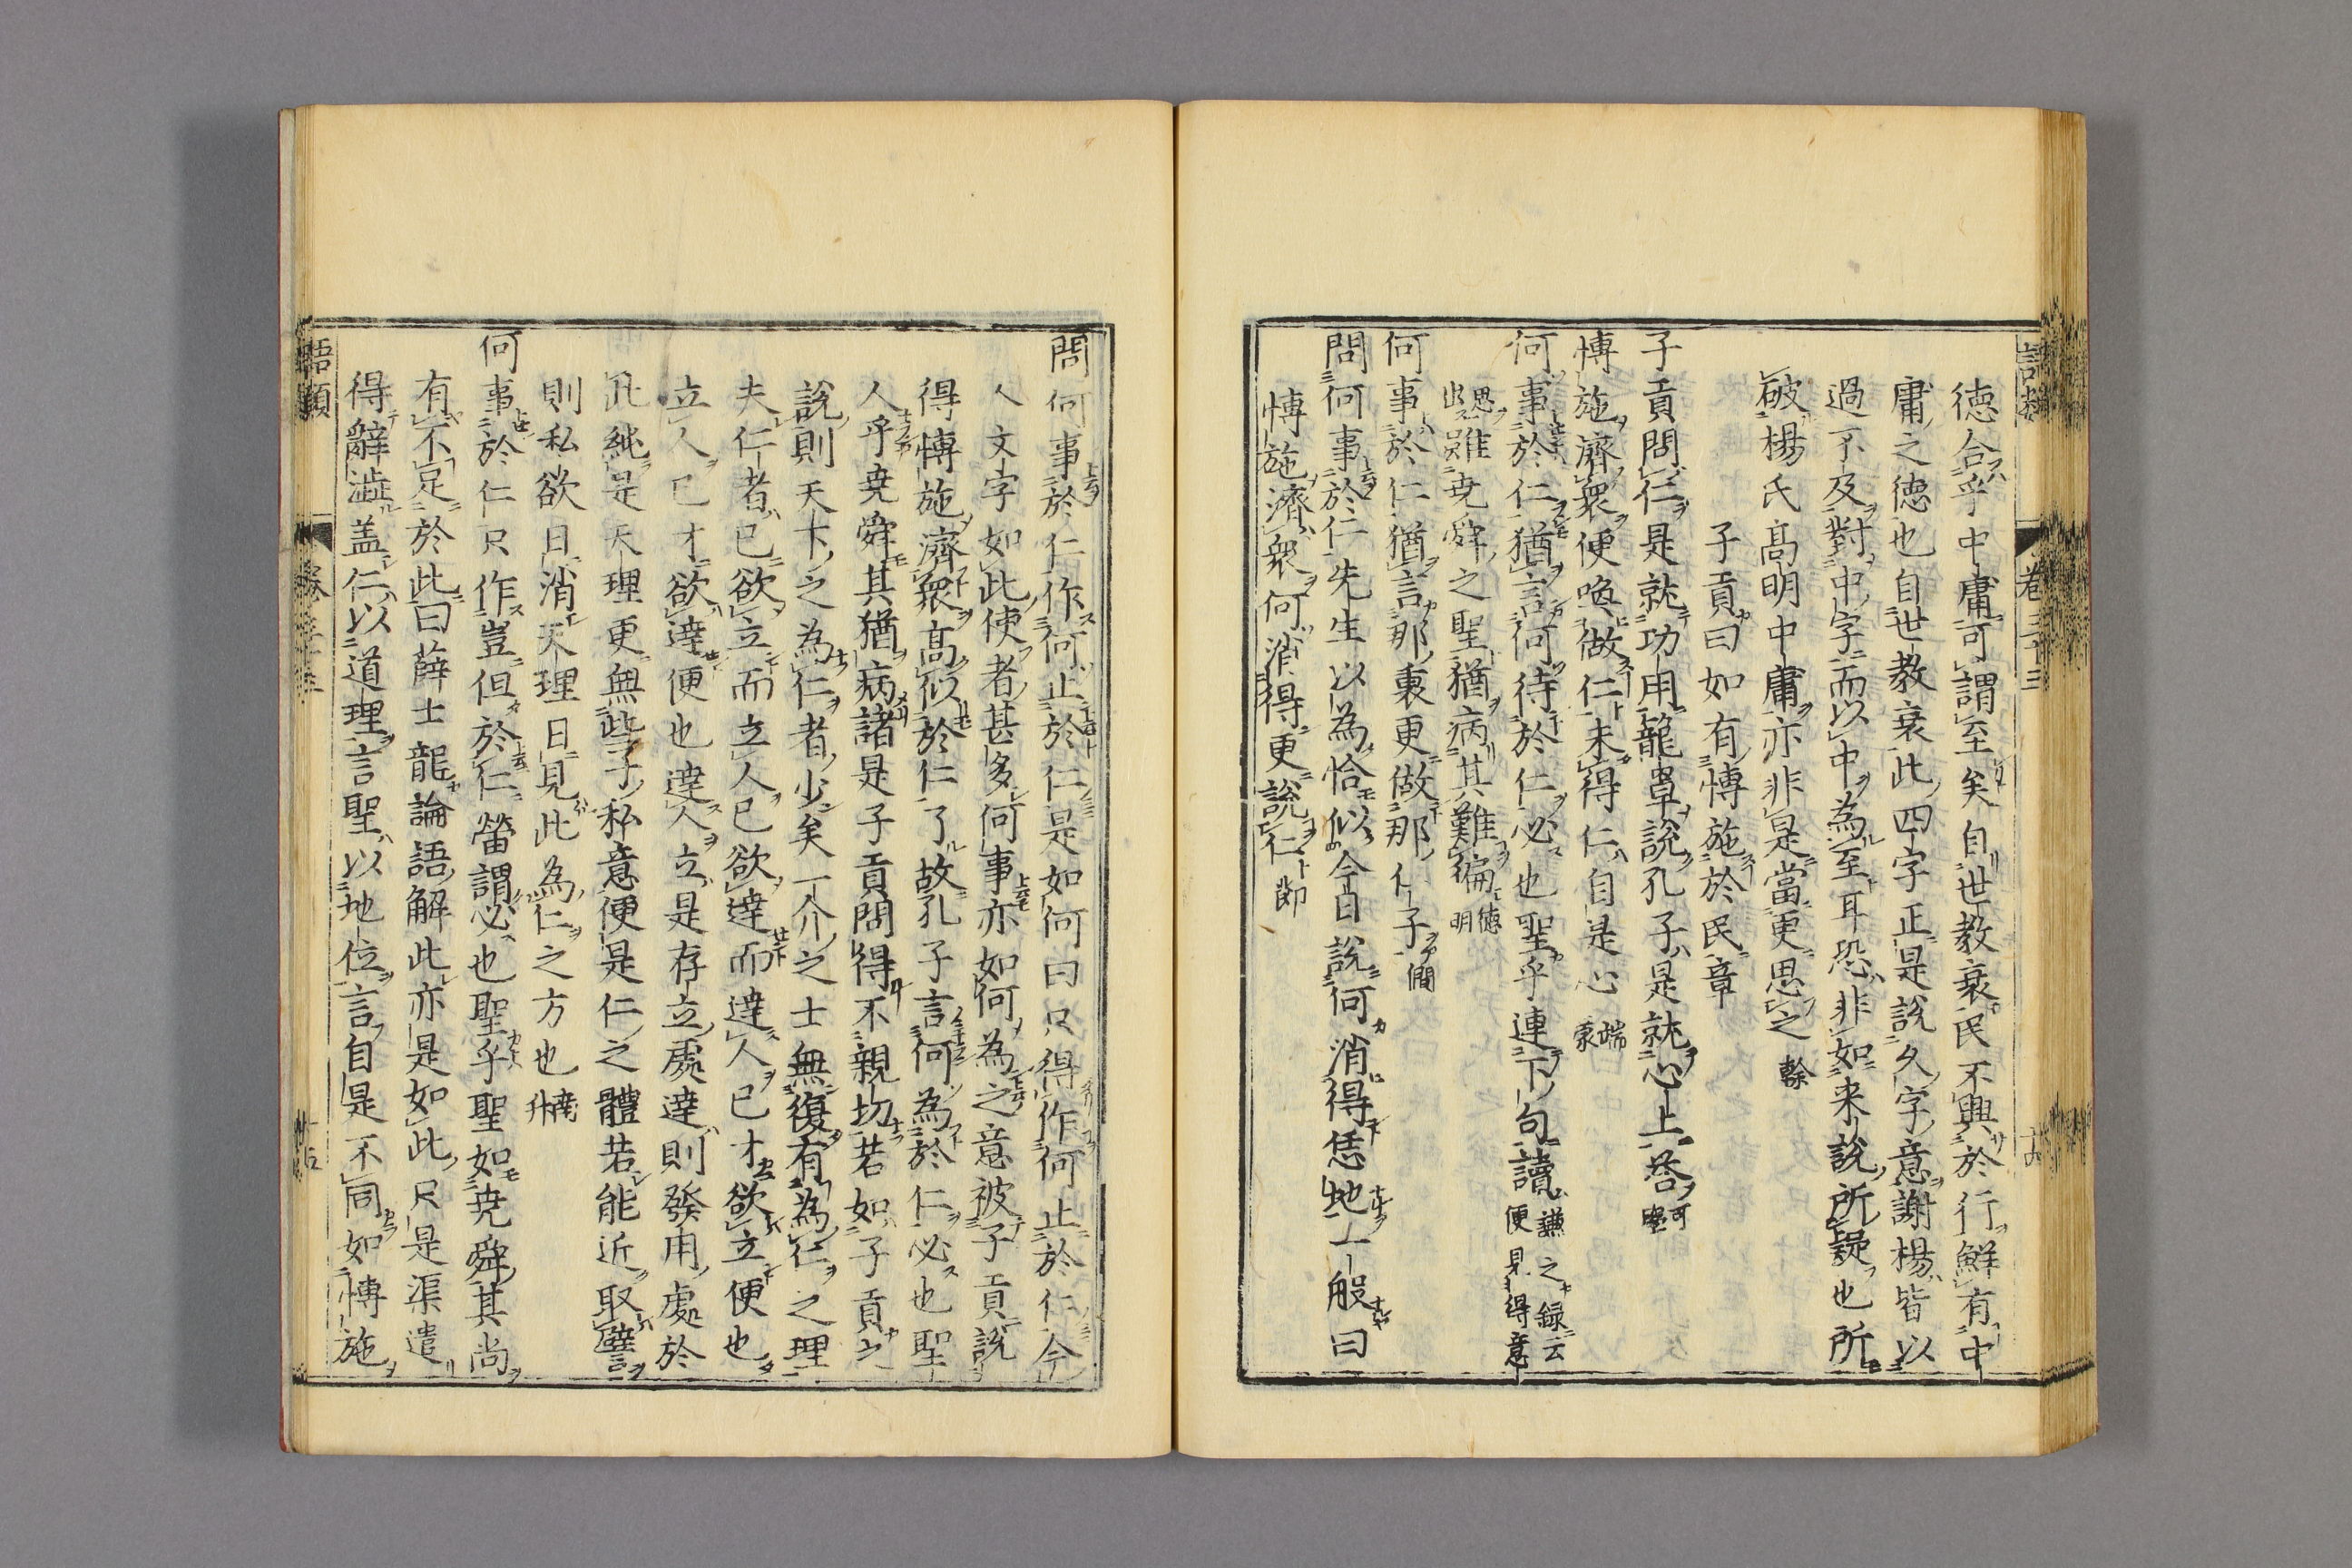 語類 卷三十三 十四
德合乎中庸可謂至矣自世教衰民不興於行鮮有中
庸之徳也自世教衰此四字正是說久字意謝楊皆以
過不及對中字而以中為至耳恐非如来說所疑也所
破楊氏高明中庸亦非是當更思之 榦
子貢曰如有博施於民章
子貢問仁是就功用籠罩說孔子是就心上荅 可學
博施濟衆便喚做仁未得仁自是心 端蒙
何事於仁猶言何待於仁必也聖乎連下句讀 謙之録云便見得意
思出 雖堯舜之聖猶病其難徧 徳明
何事於仁猶言那裏更做那仁了 僩
問何事於仁先生以為恰似今日說何消得恁地一般曰
博施濟衆何消得更說仁 節
問何事於仁作何止於仁是如何曰只得作何止於仁今
人文字如此使者甚多何事亦如何為之意被子貢說
得博施濟衆高似於仁了故孔子言何為於仁必也聖
人乎堯舜其猶病諸是子貢問得不親切若如子貢之
說則天下之為仁者少矣一介之士無復有為仁之理
夫仁者己欲立而立人己欲達而達人己才欲立便也
立人己才欲達便也達人立是存立處達則發用處於
此純是天理更無些子私意便是仁之體若能近取譬
則私欲日消天理日見此為仁之方也
何事於仁只作豈但於仁 謂必也聖乎聖如堯舜其尚
有不足於此曰薛士龍論語解此亦是如此只是渠遣
得辭澁盖仁以道理言聖以地位言自是不同如博施
語類 卷三十三 十五